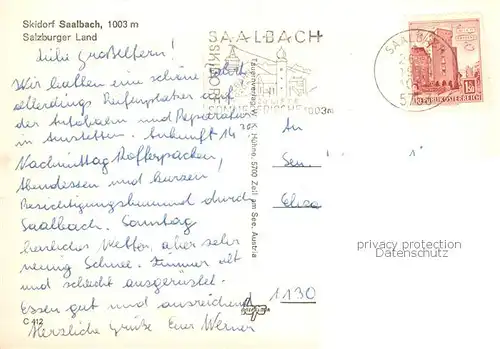 Skidorf Saalbach, 1003 m
Salzburger Land
Liebe Großeltern!
Wir hatten eine schöne Fahrt
allerdings Reifenplatzer auf
der Autobahn und Reparatur
in Amstetten. Ankunft 14 30.
Nachmittag Kofferpacken,
Abendessen und kurzen
Besichtigungsbummel durch
Saalbach. Sonntag
herrliches Wetter, aber sehr
wenig Schnee. Zimmer alt
und schlecht ausgerüstet.
Essen gut und ausreichend
Herzliche Grüße Euer Werner
C 412
SAALBACH
SKIDORF
SOMMERFRISCHE
1003m
Tauernverlag W. K. Hühne, 5700 Zell am See, Austria
SAALBACH
REPUBLIK ÖSTERREICH
An
Elisa
1130
privacy protection
Datenschutz